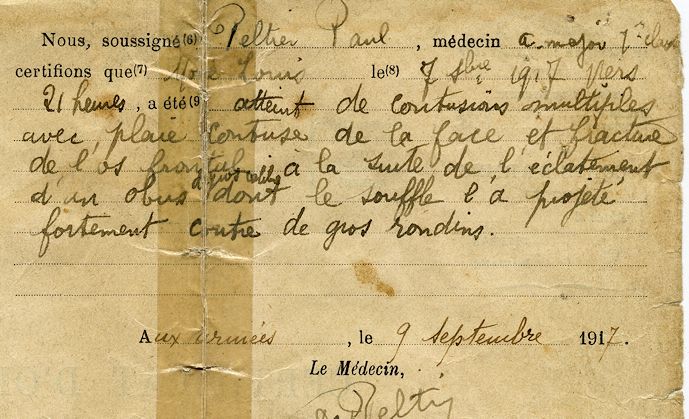 Nous, soussigné (6) Peltier Paul, médecin a. major 1re classe
certifions que (7) Louis le (8) 7 7bre 1917 vers
21 heures, a été (9) atteint de contusions multiples
avec plaie contuse de la face et fracture
de l'os frontal à la suite de l'éclatement
d'un obus de gros calibre dont le souffle l'a projeté
fortement contre de gros rondins.
Aux armées, le 9 septembre 1917.
Le Médecin,